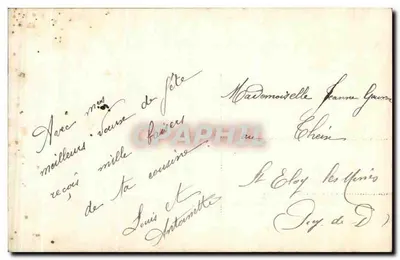 Avec mes
meilleurs vœux de fête
reçois mille baisers
de ta cousine
Louis et
Antoinette
Mademoiselle Jeanne
rue
St Eloy les Mines
Puy de D)
CPAPHIL